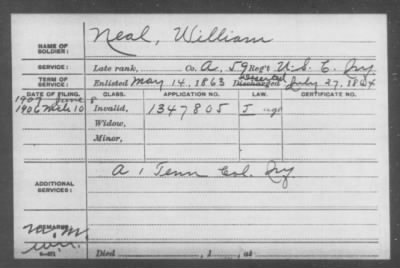 NAME OF SOLDIER: Neal, William
SERVICE: Late rank, Co. A, 59 Reg't U.S.C. Inf.
TERM OF SERVICE: Enlisted May 14, 1863 Discharged Deserted July 27, 1864
DATE OF FILING. CLASS. APPLICATION NO. LAW. CERTIFICATE NO.
1907 June 8
1906 Mch 10 Invalid, 1347805 J age
Widow,
Minor,
ADDITIONAL SERVICES: A 1 Tenn Col. Inf.
REMARKS:
Died , 1 , at